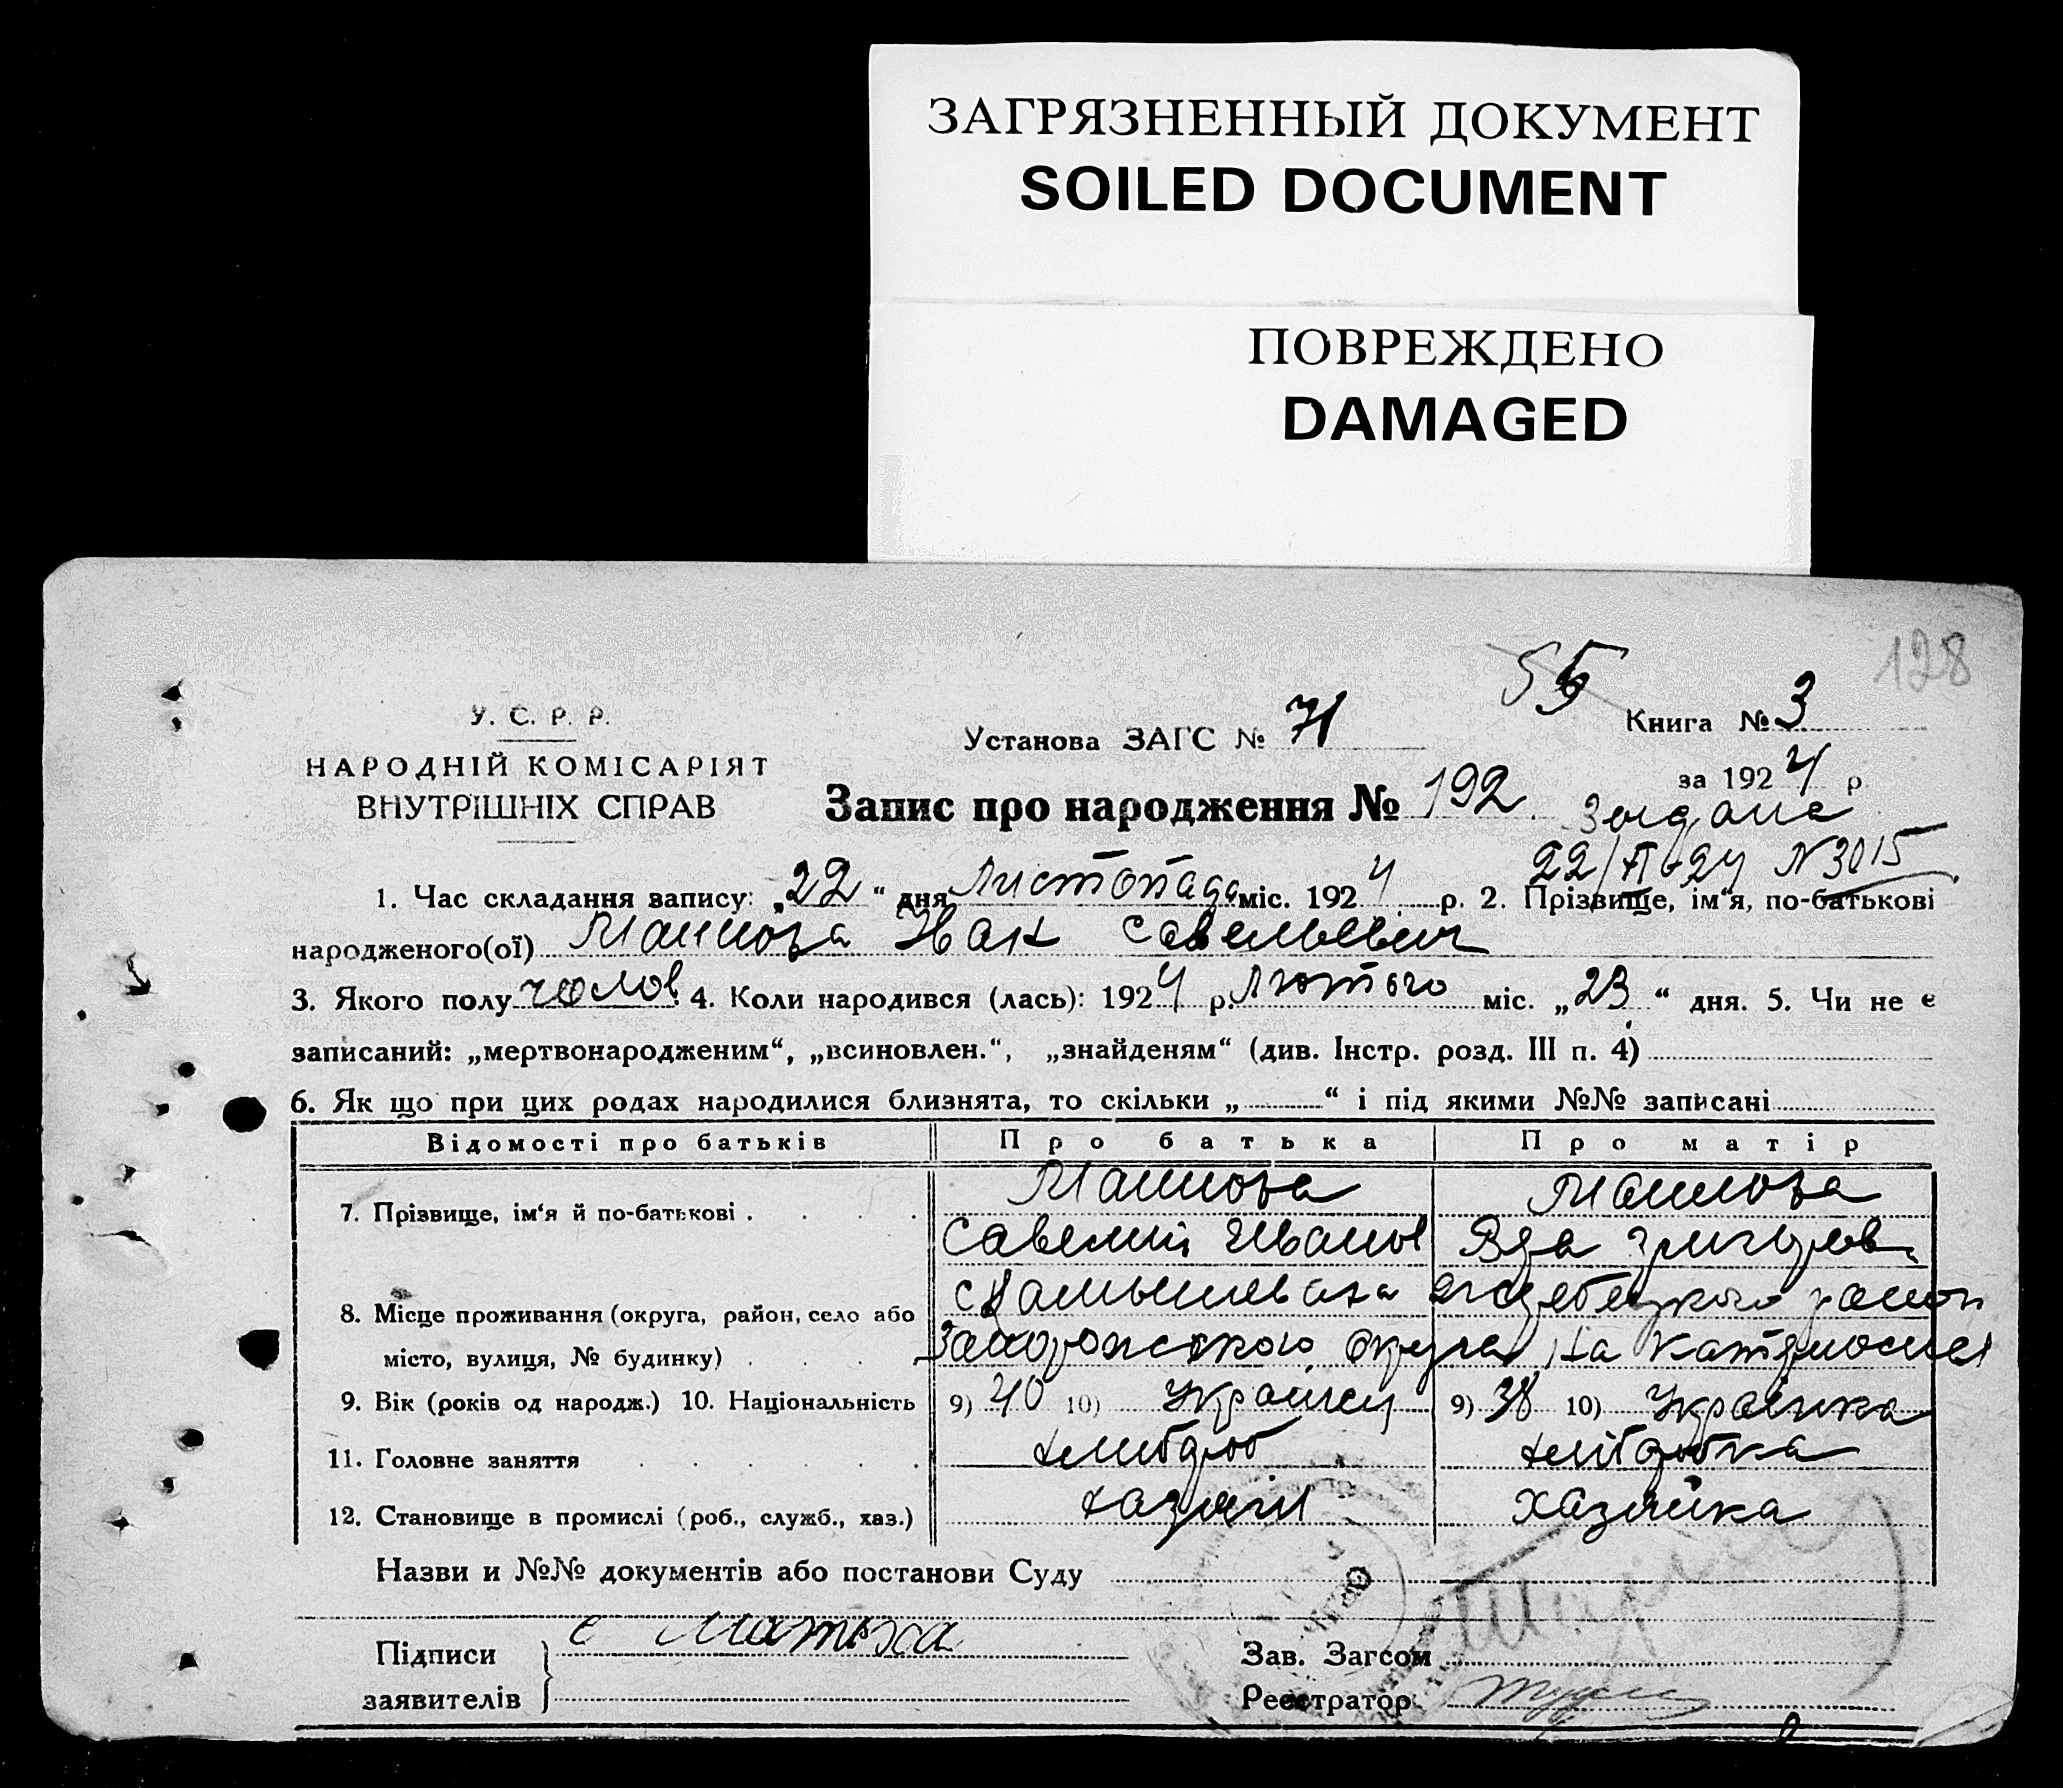 ЗАГРЯЗНЕННЫЙ ДОКУМЕНТ
SOILED DOCUMENT
ПОВРЕЖДЕНО
DAMAGED
128
У. С. Р. Р.
Установа ЗАГС № 71
Книга № 3
НАРОДНІЙ КОМІСАРІЯТ
ВНУТРІШНІХ СПРАВ
за 1924 р.
Запис про народження № 192
N 3015
1. Час складання запису: „22“ дня Листопада міс. 1924 р. 2. Прізвище, ім'я, по-батькові
народженого(ої) Савельевич
3. Якого полу чолов. 4. Коли народився (лась): 1924 р. Лютого міс. „23“ дня. 5. Чи не є
записаний: „мертвонародженим“, „всиновлен.“, „знайденям“ (див. Інстр. розд. III п. 4)
6. Як що при цих родах народилися близнята, то скільки „ “ і під якими №№ записані
Відомості про батьків Про батька Про матір
7. Прізвище, ім'я й по-батькові
Савелий Иванов
8. Місце проживання (округа, район, село або
місто, вулиця, № будинку) Запорожського округа На
9. Вік (років од народж.) 10. Національність 9) 40 10) Українец 9) 38 10) Українка
11. Головне заняття хлибороб хлиборобка
12. Становище в промислі (роб., служб., хаз.) хазяїн Хазяйка
Назви и №№ документів або постанови Суду
Підписи
Зав. Загсом
заявителів
Реєстратор